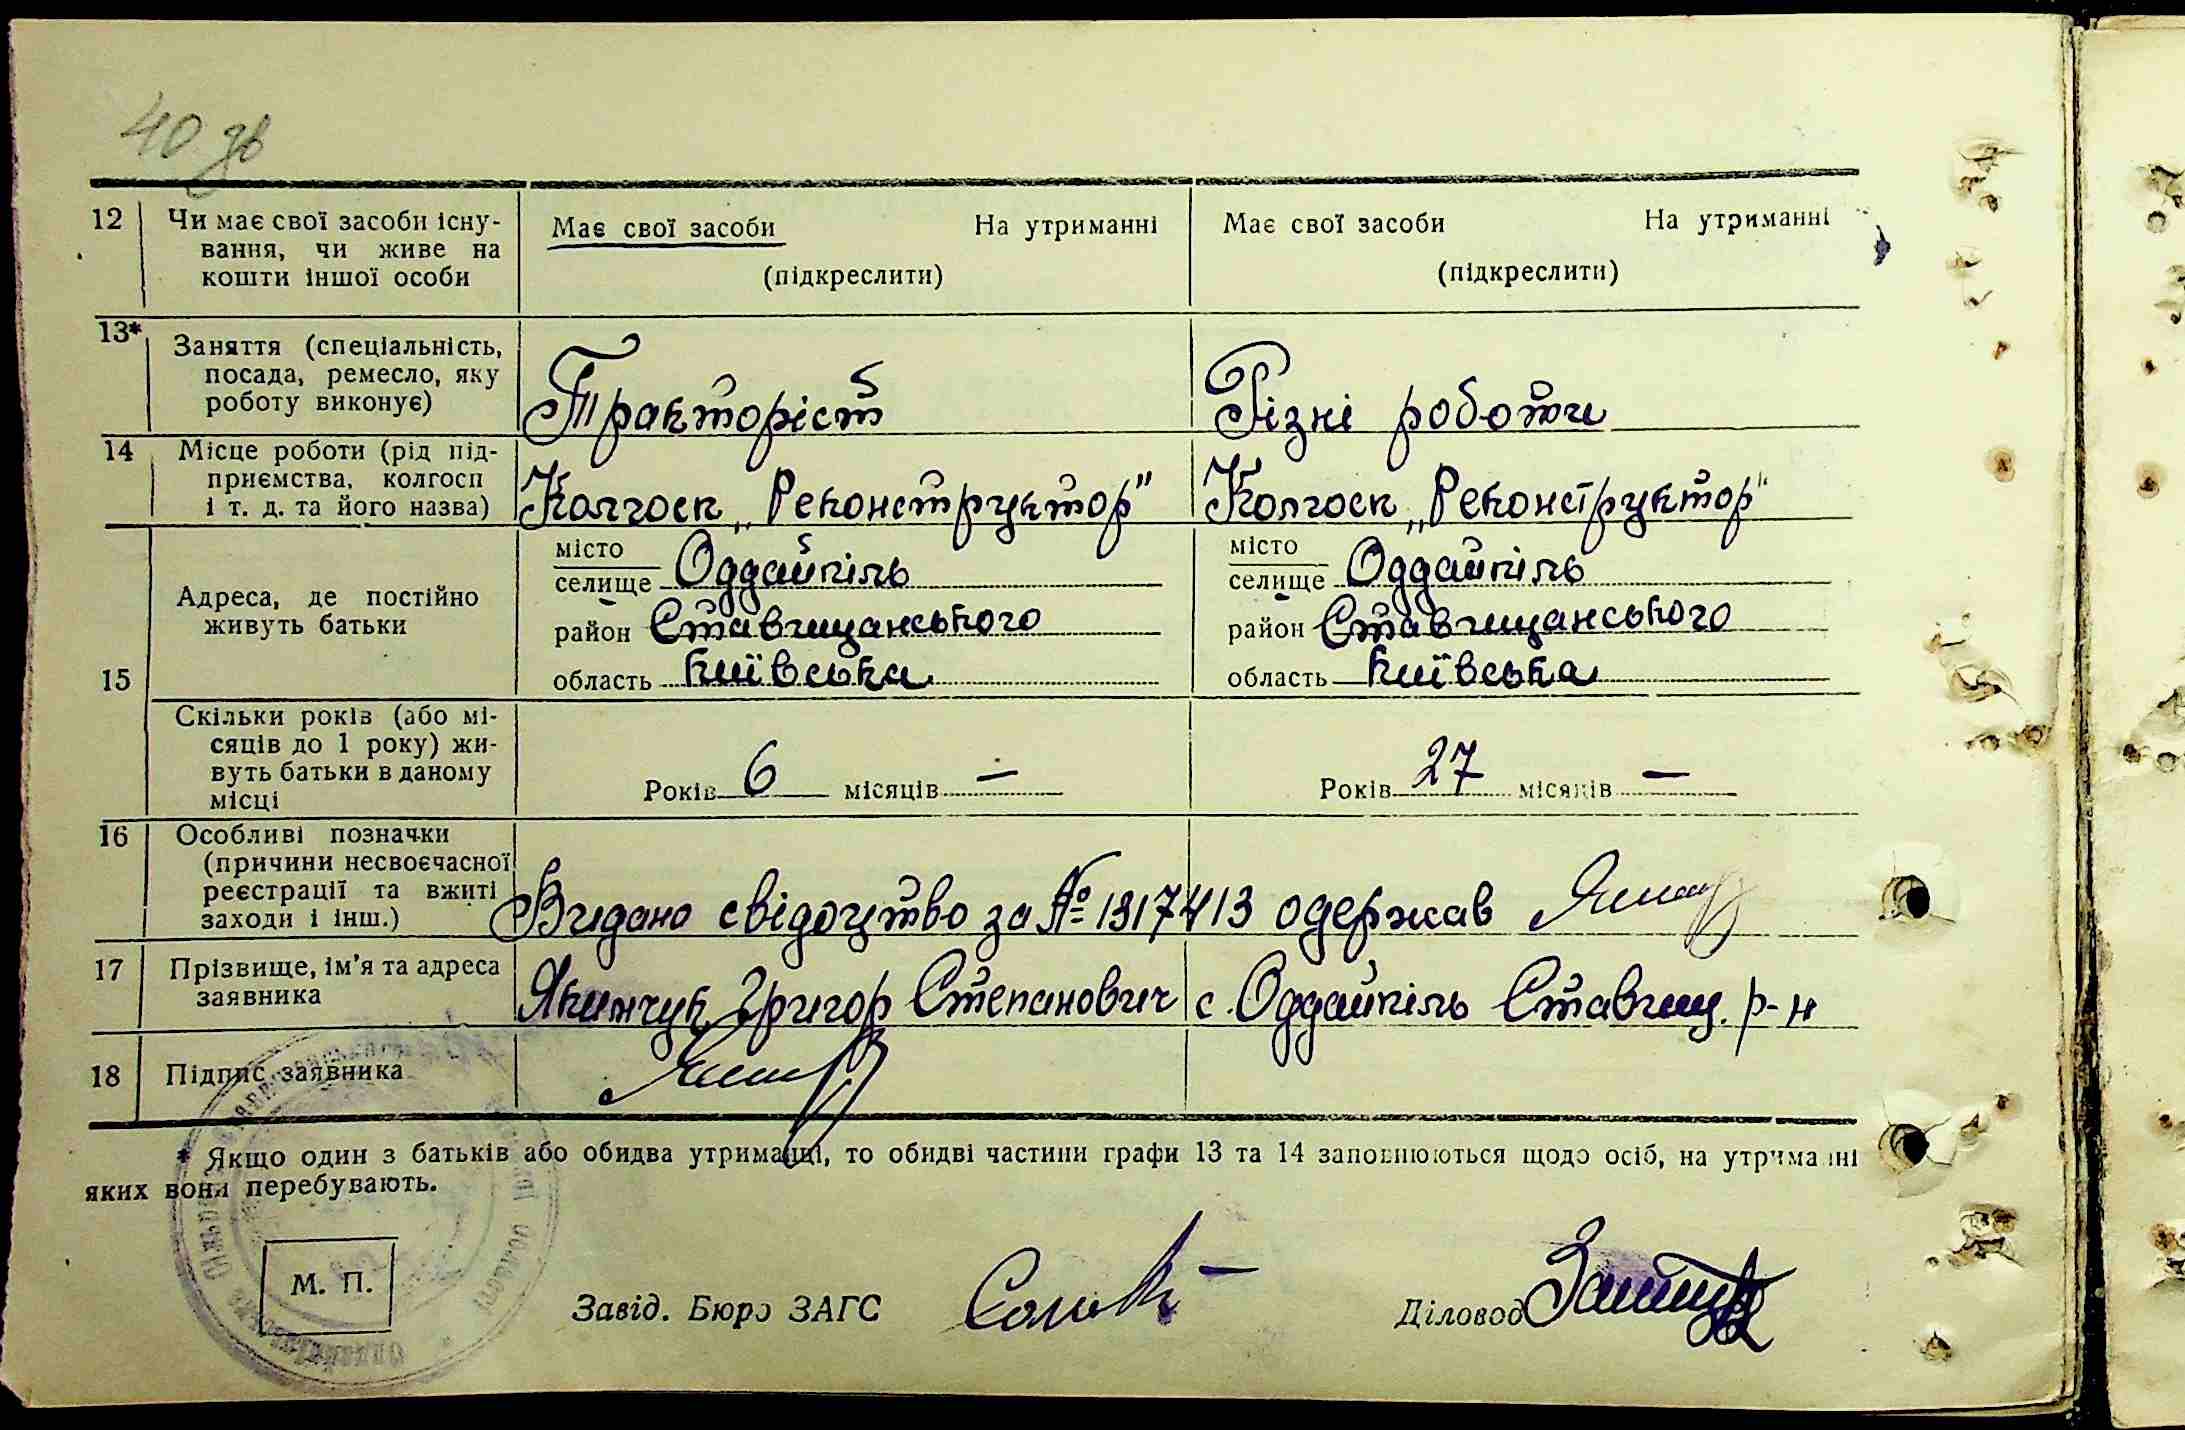 40 зв
12 Чи має свої засоби існу- Має свої засоби На утриманні Має свої засоби На утриманні
вання, чи живе на
кошти іншої особи (підкреслити) (підкреслити)
13* Заняття (спеціальність,
посада, ремесло, яку
роботу виконує) Тракторіст Різні роботи
14 Місце роботи (рід під-
приємства, колгосп
і т. д. та його назва) Колгосп „Реконструктор" Колгосп „Реконструктор"
15 Адреса, де постійно
живуть батьки
місто
селище Оддайпіль
район Ставищанського
область Київська
місто
селище Оддайпіль
район Ставищанського
область Київська
Скільки років (або мі-
сяців до 1 року) жи-
вуть батьки в даному
місці
Років 6 місяців — Років 27 місяців —
16 Особливі позначки
(причини несвоєчасної
реєстрації та вжиті
заходи і інш.) Видано свідоцтво за № 1317413 одержав
17 Прізвище, ім'я та адреса
заявника Якимчук Григор Степанович с. Оддайпіль Ставищ. р-н
18 Підпис заявника
* Якщо один з батьків або обидва утриманці, то обидві частини графи 13 та 14 заповнюються щодо осіб, на утриманні
яких вони перебувають.
М. П.
Завід. Бюро ЗАГС Діловод